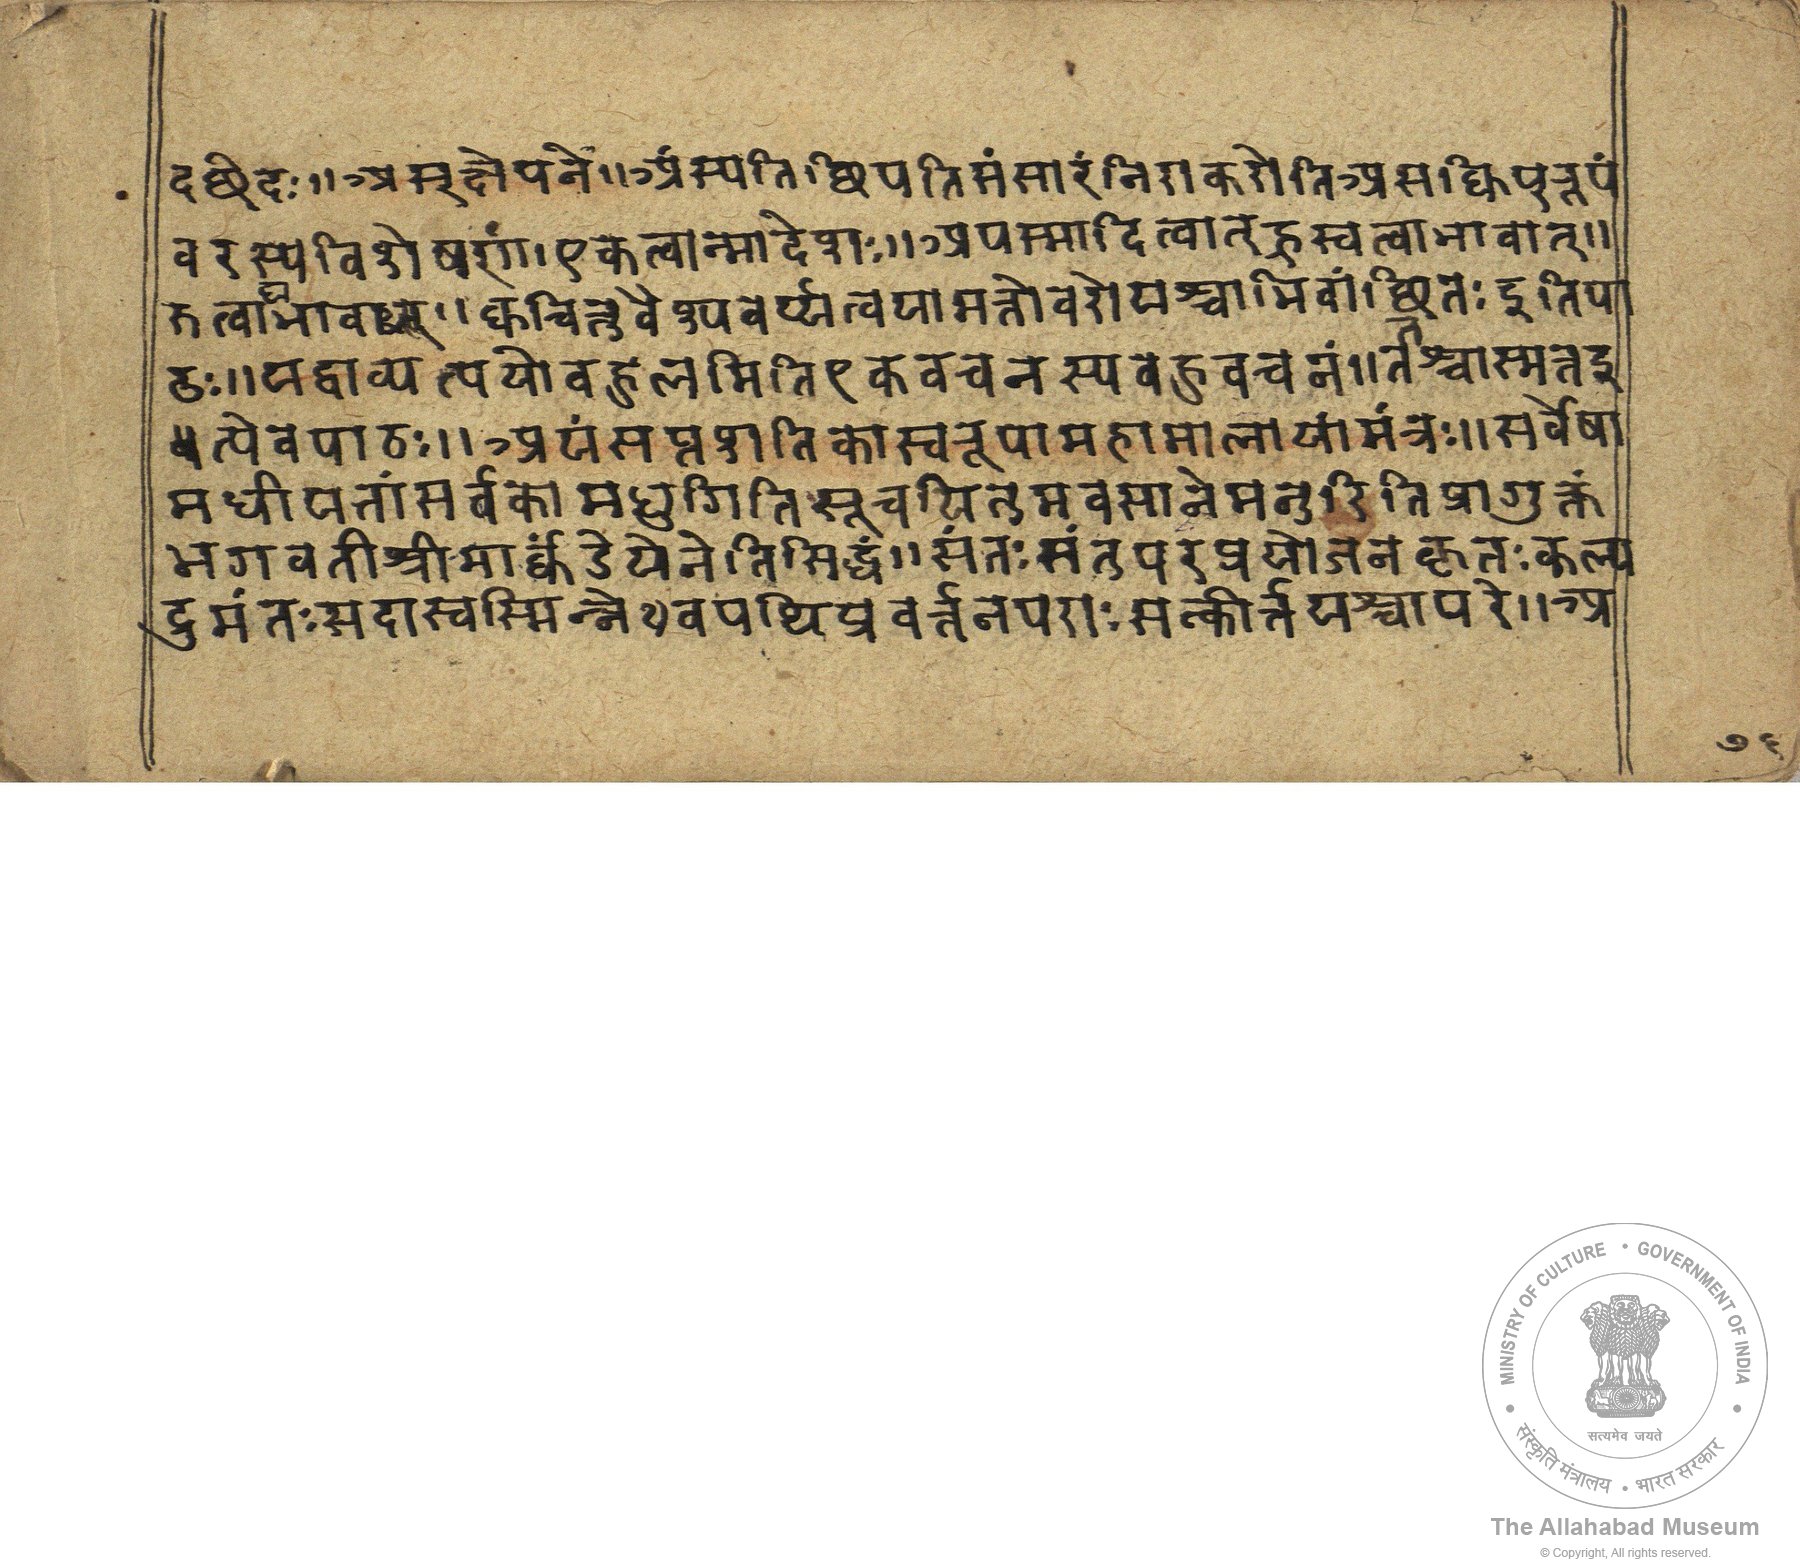 दछिदः॥असुक्षेपने॥अंस्यतिक्षिपतिसंसारंनिराकरोतिअसक्विपुत्रूपं
वरस्यविशेषणं।एकेत्वान्मादेशः॥अपस्मादित्वात्ह्रस्वत्वाभावात्॥
क्वचित्तुवैश्यवर्य्यत्वयामत्तोवरोयश्चाभिवांछितः इतिपा
ठः॥यद्वाव्यत्पयोवहुलमितिएकवचनस्यवहुवचनं॥
त्पेवपाठः॥अयंसप्तशतिकास्वरूपामहामालायांमंत्रः॥सर्वेषा
मधीयतांसर्वकामधुगितिसूचयितुमवसानेमनुरितिप्रागुक्तं
भगवतीश्रीमार्क्कंडेयेनेतिसिद्धं॥संतःसंतुपरप्रयोजनकृतःकल्प
द्रुमंतःसदास्वस्मिन्नेवपथिप्रवर्त्तनपराःसत्कीर्त्तयश्चापरे॥अ
७६
MINISTRY OF CULTURE • GOVERNMENT OF INDIA
सत्यमेव जयते
संस्कृति मंत्रालय • भारत सरकार
The Allahabad Museum
© Copyright, All rights reserved.